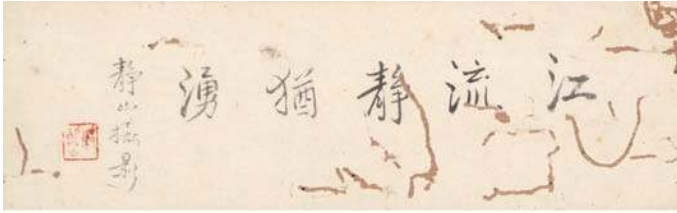 江流靜猶湧
靜山攝影